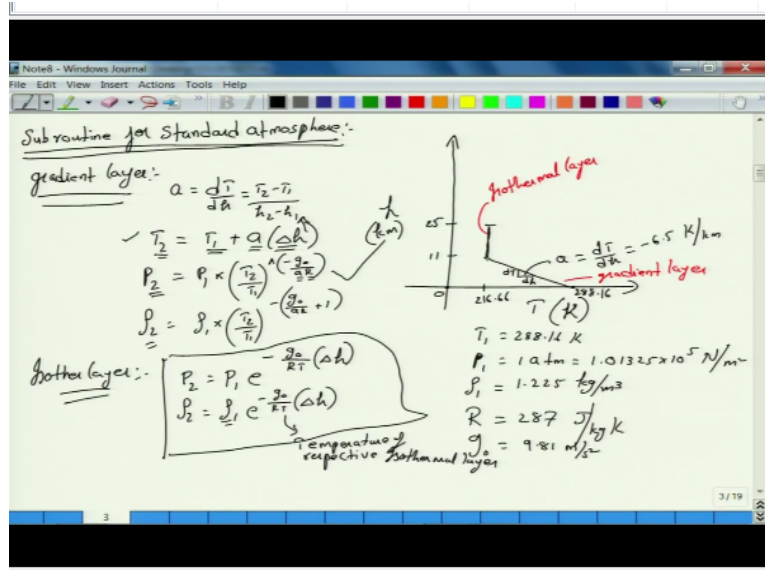 Note8 - Windows Journal
File Edit View Insert Actions Tools Help
Subroutine for Standard atmosphere:-
gradient layer:-
a = dT/dh = T₂-T₁/h₂-h₁
✓ T₂ = T₁ + a(Δh)
P₂ = P₁ × (T₂/T₁)^(-g₀/aR)
ρ₂ = ρ₁ × (T₂/T₁)^-(g₀/aR + 1)
Isother layer:-
P₂ = P₁ e^-g₀/RT (Δh)
ρ₂ = ρ₁ e^-g₀/RT (Δh)
Temperature of
respective Isothermal layer
h
(km)
25
11
0
216.66
288.16
T (K)
Isothermal layer
dT
dh
a = dT/dh = -6.5 K/km
gradient layer
T₁ = 288.16 K
P₁ = 1 atm = 1.01325×10⁵ N/m²
ρ₁ = 1.225 kg/m3
R = 287 J/kg K
g₀ = 9.81 m/s²
3/19
3